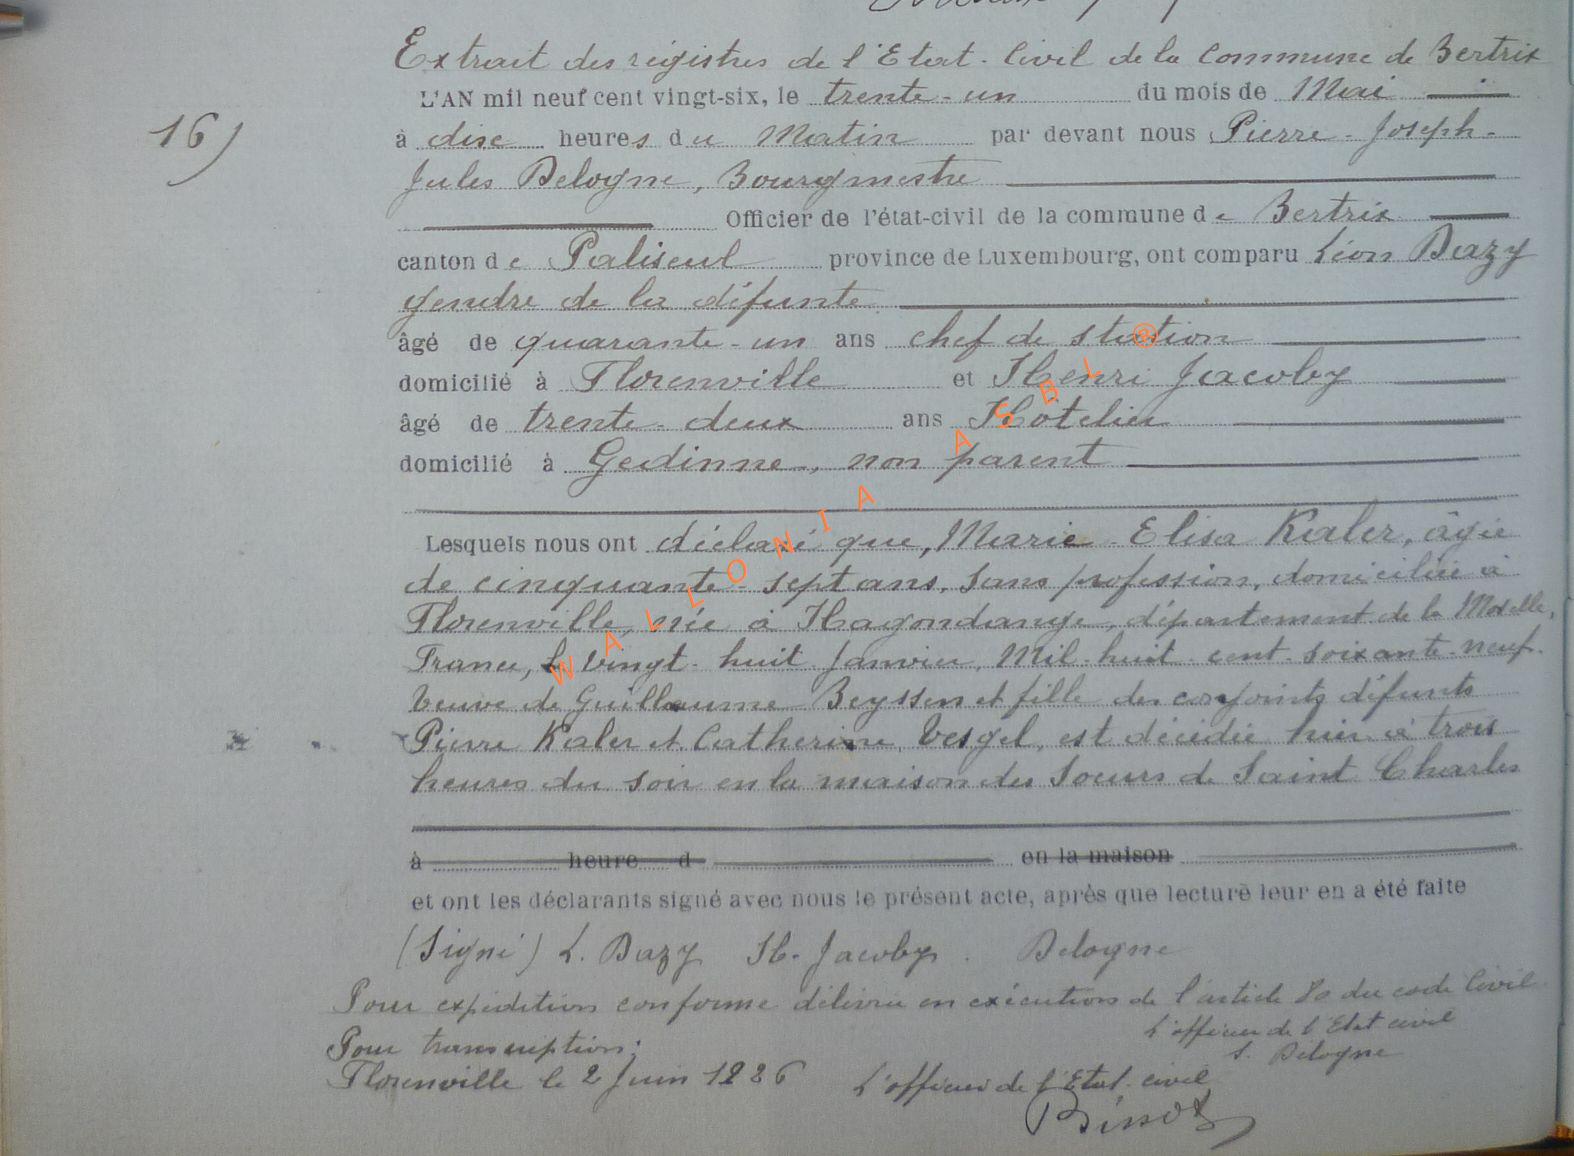 Extrait des régistres de l'Etat-Civil de la Commune de Bertrix
L'AN mil neuf cent vingt-six, le trente-un du mois de Mai
16)
à dix heures du Matin par devant nous Pierre-Joseph-
Jules Delogne, Bourgmestre
Officier de l'état-civil de la commune de Bertrix
canton de Paliseul province de Luxembourg, ont comparu Léon Dazy
gendre de la défunte
âgé de quarante-un ans chef de station
domicilié à Florenville et Henri Jacoby
âgé de trente-deux ans Hôtelier
domicilié à Gedinne, non parent
Lesquels nous ont déclaré que, Marie-Elisa Kaler, âgée
de cinquante-sept ans, sans profession, domiciliée à
Florenville, née à Hagondange, département de la Moselle,
France, le vingt-huit Janvier, Mil-huit-cent-soixante-neuf.
Veuve de Guillaume Beyssen et fille des conjoints défunts
Pierre Kaler et Catherine Vesgel, est décédée hier à trois
heures du soir en la maison des Soeurs de Saint Charles
à heure d en la maison
et ont les déclarants signé avec nous le présent acte, après que lecture leur en a été faite
(Signé) L. Dazy H. Jacoby. Delogne
Pour expédition conforme délivrée en exécution de l'article 80 du code Civil
L'officier de l'Etat civil
Pour transcription; J. Delogne
Florenville le 2 Juin 1926 L'officier de l'Etat-civil
WALLONIA ASBL ®